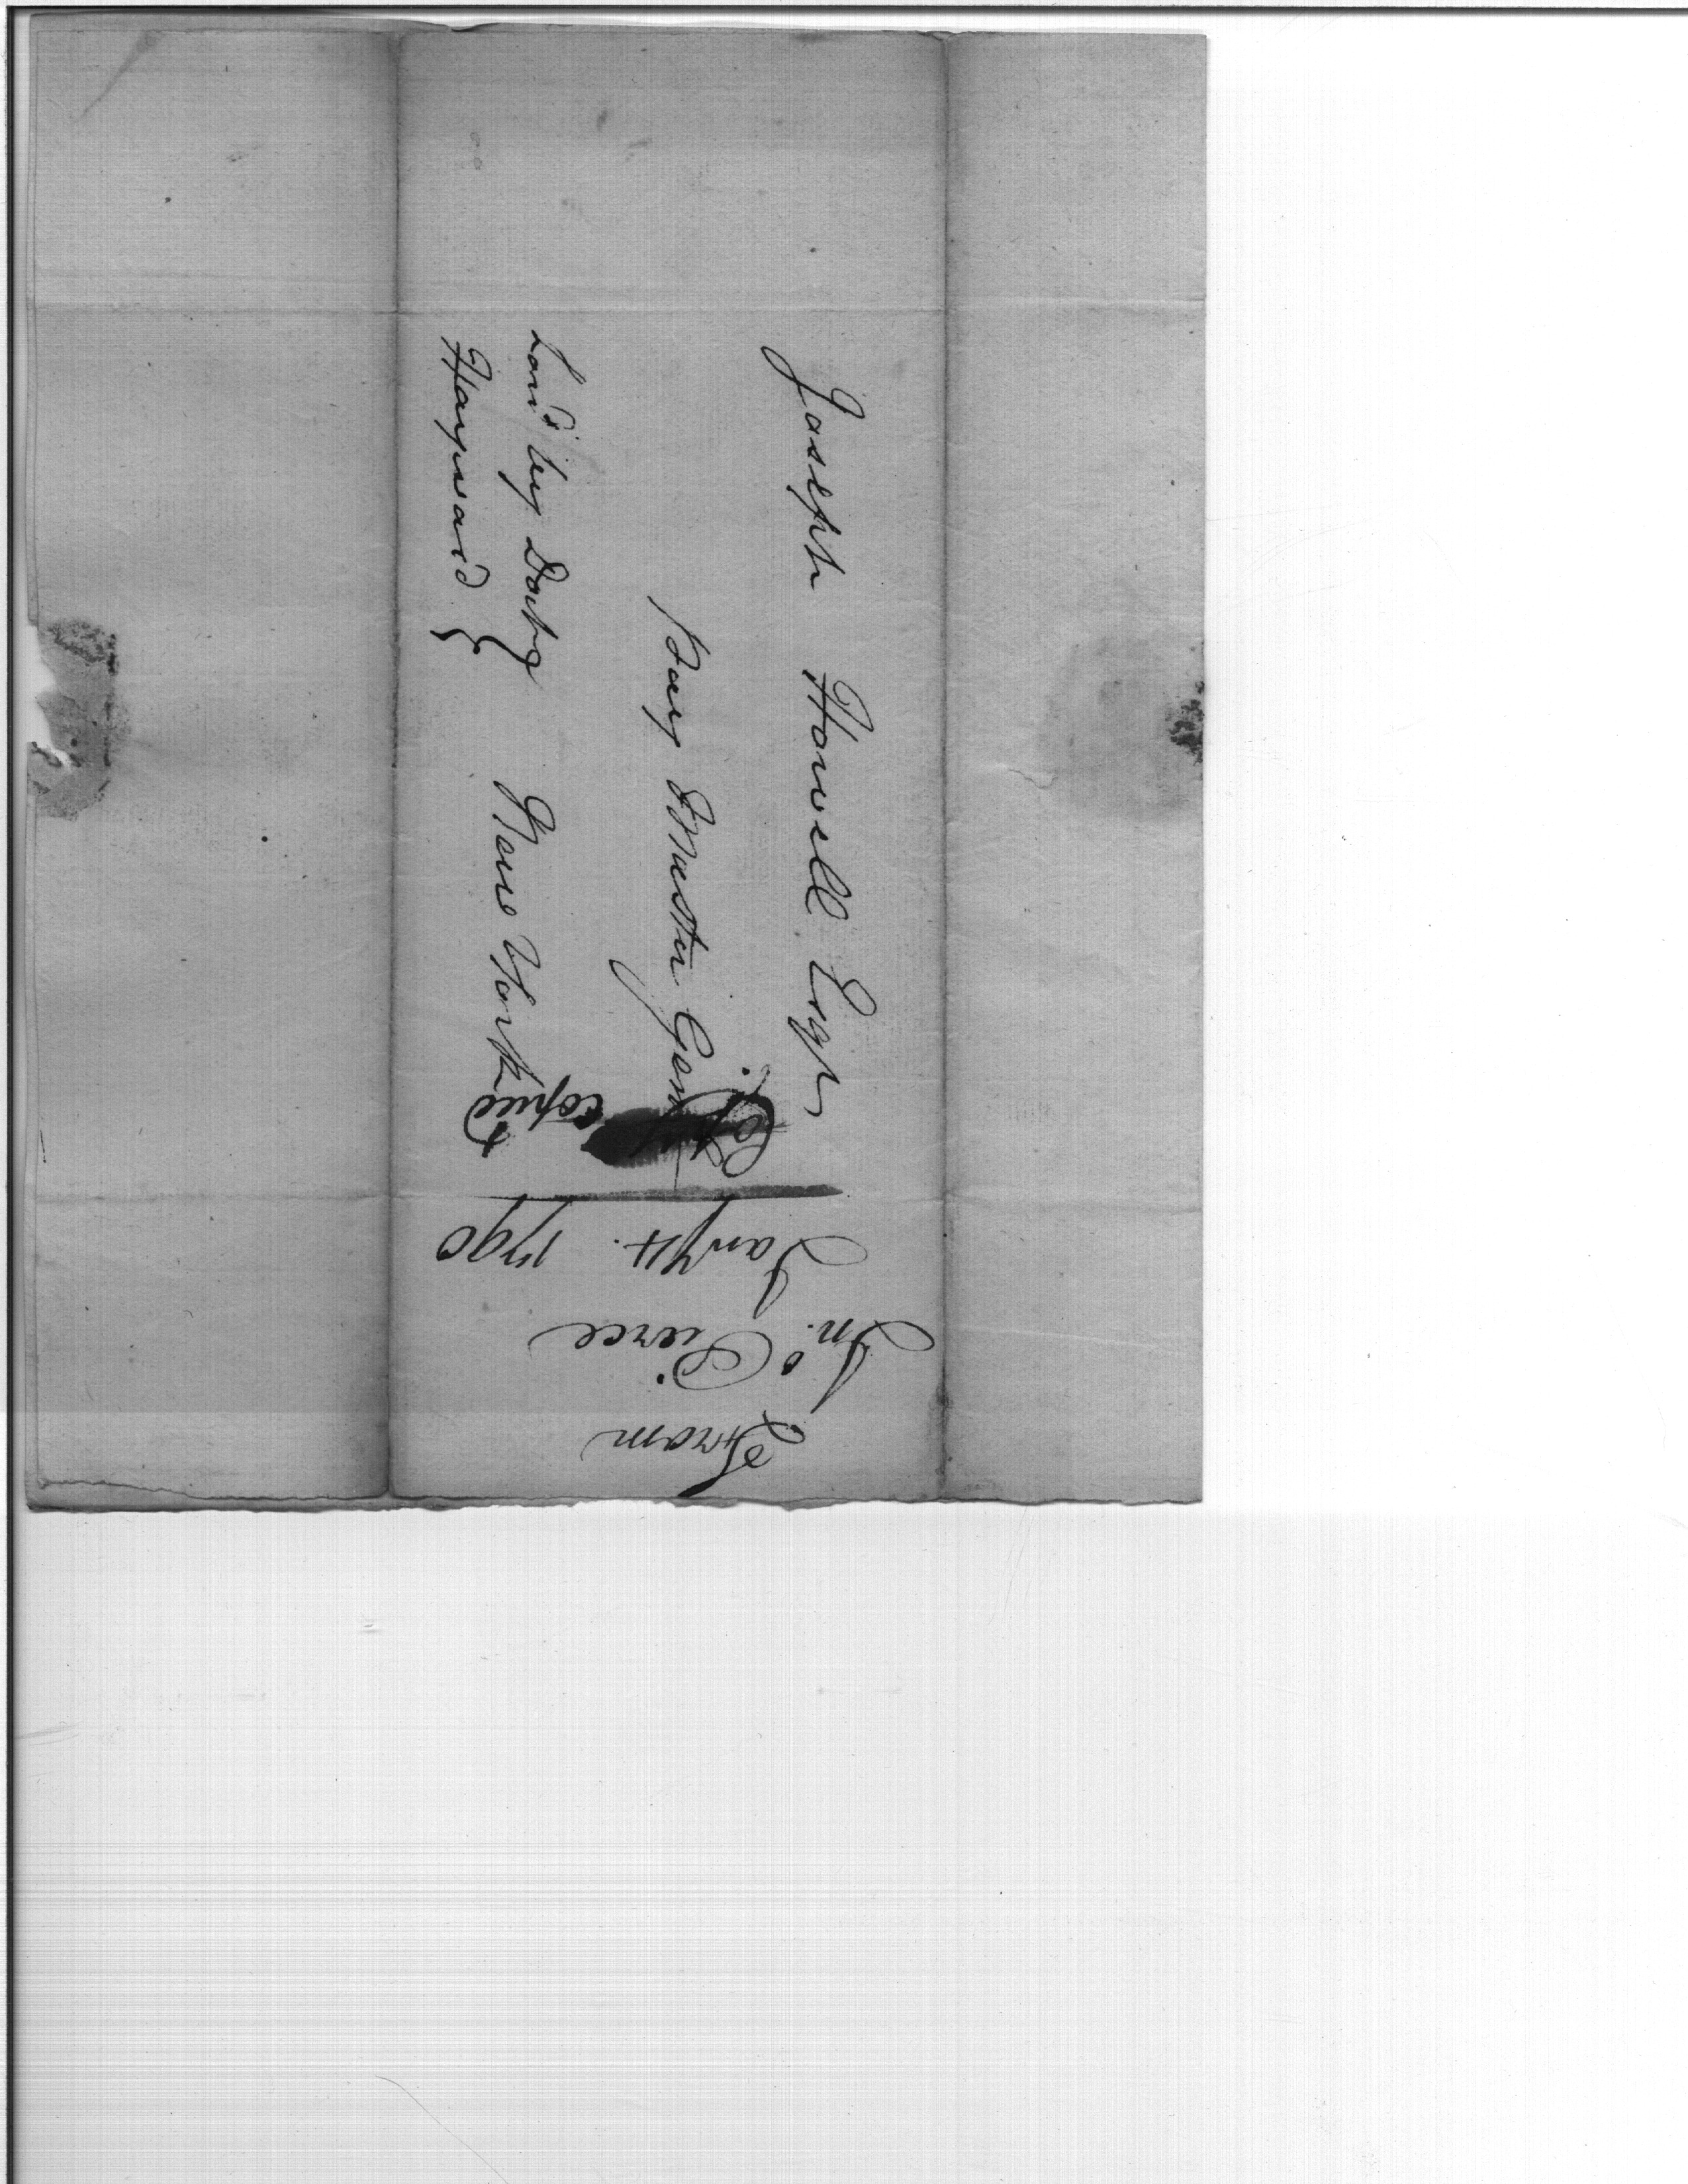 Joseph Howell Esqr
Pay Master Genl
New York
hond by Doctr
Hayward
From
Jno. Pierce
Jany 14. 1790
copied